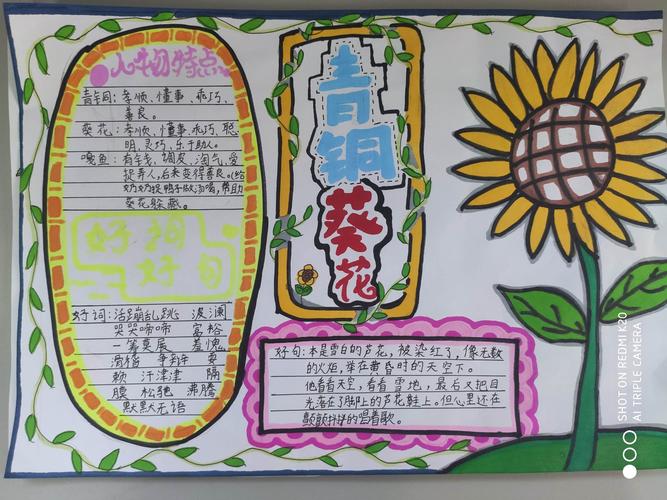 人物特点
青铜:孝顺、懂事、乖巧、
善良。
葵花:孝顺、懂事、乖巧、聪
明、灵巧、乐于助人。
嘎鱼:有钱、调皮、淘气、爱
捉弄人,后来变得善良。(给
奶奶捉鸭子做汤喝,帮助
葵花躲藏。
好词
好句
好词:活蹦乱跳 波澜
哭哭啼啼 富裕
一筹莫展 羞愧
滑稽 争辩 耍
赖 汗津津 隔
膜 松弛 沸腾
默默无语
青铜
葵花
好句:本是雪白的芦花,被染红了,像无数
的火炬,举在黄昏时的天空下。
他看看天空,看看雪地,最后又把目
光落在了脚上的芦花鞋上。但心里还在
颤颤抖抖的唱着歌。
SHOT ON REDMI K20
AI TRIPLE CAMERA